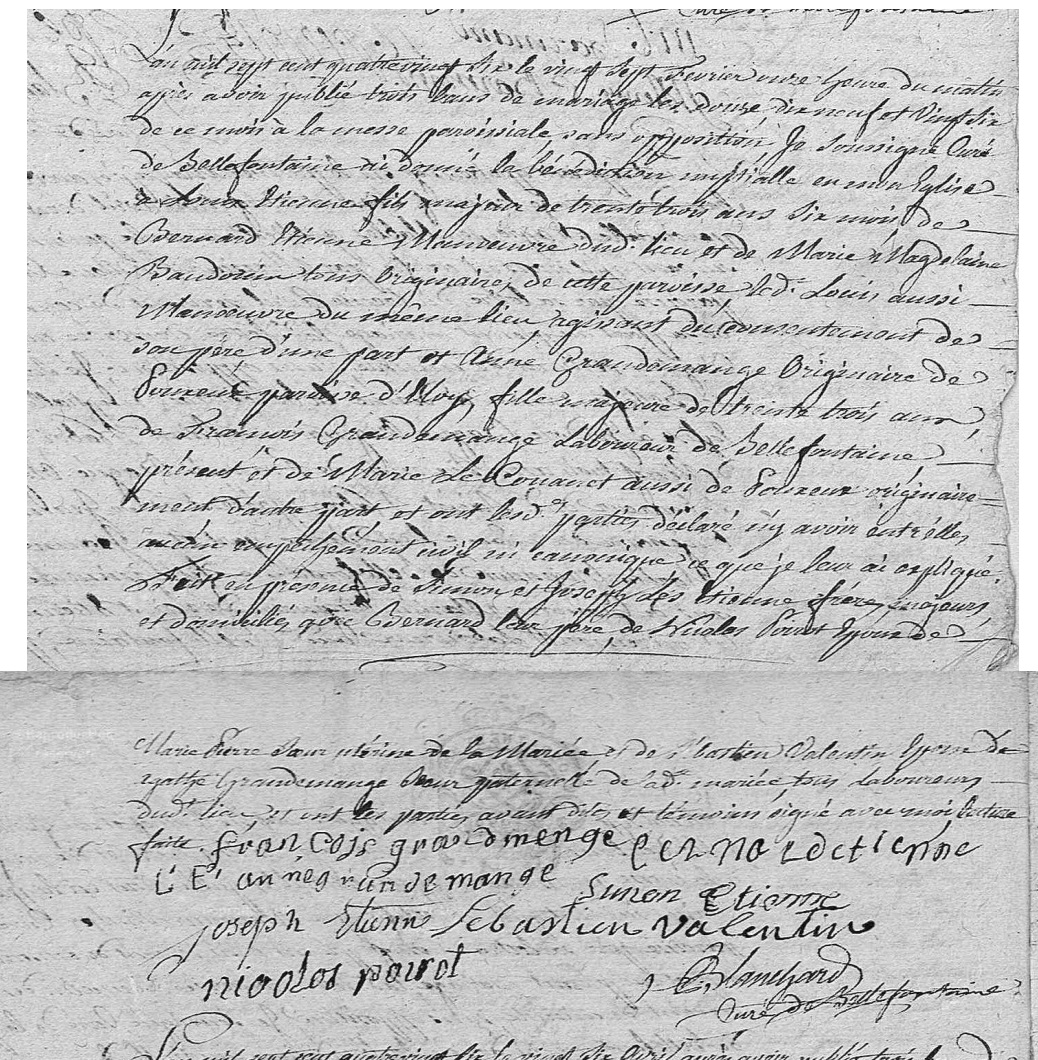 Curé de Bellefontaine
L'an mil sept cent quatre vingt six le vingt sept Fevrier onze heure du matin
après avoir publié trois bans de mariage les douze, dix neuf et Vingt six
de ce mois à la messe paroissiale, sans opposition Je soussigné Curé
de Bellefontaine ai donné la bénédiction nuptialle en mon Eglise
à Louis Etienne fils majeur de trente trois ans six mois, de
Bernard Etienne Manoeuvre dud. lieu et de Marie Magdelaine
Baudouin tous Originaires de cette paroisse led. Louis aussi
Manoeuvre du même lieu, agissant du consentement de
son père d'une part et Anne Grandemange Originaire de
paroisse d'Eloy, fille majeure de trente trois ans
de François Grandemange Laboureur de Bellefontaine
présent et de Marie Le aussi de originaire-
ment d'autre part et ont lesd. parties déclaré n'y avoir entr'elles
aucun empêchement civil ni canonique ce que je leur ai expliqué.
Fait en présence de Simon et Joseph les Etienne frères majeurs
et domiciliés avec Bernard leur père, de Nicolas Poirot Epoux de
Marie Pierre Soeur utérine de la Mariée et de S'bastien Valentin Epoux de
agathe Grandemange Soeur paternelle de lad. mariée, tous laboureurs
dud. lieu, et ont les parties avant dites et témoins signé avec moi lecture
faite. franCois grandmenge Bernard etienne
L E anne grandemange Simon Etienne
joseph Etienne Sebastien valentin
nicolas poirot
Blanchard
Curé de Bellefontaine
L'an mil sept cent quatre vingt six le vingt six Avril après avoir publié trois